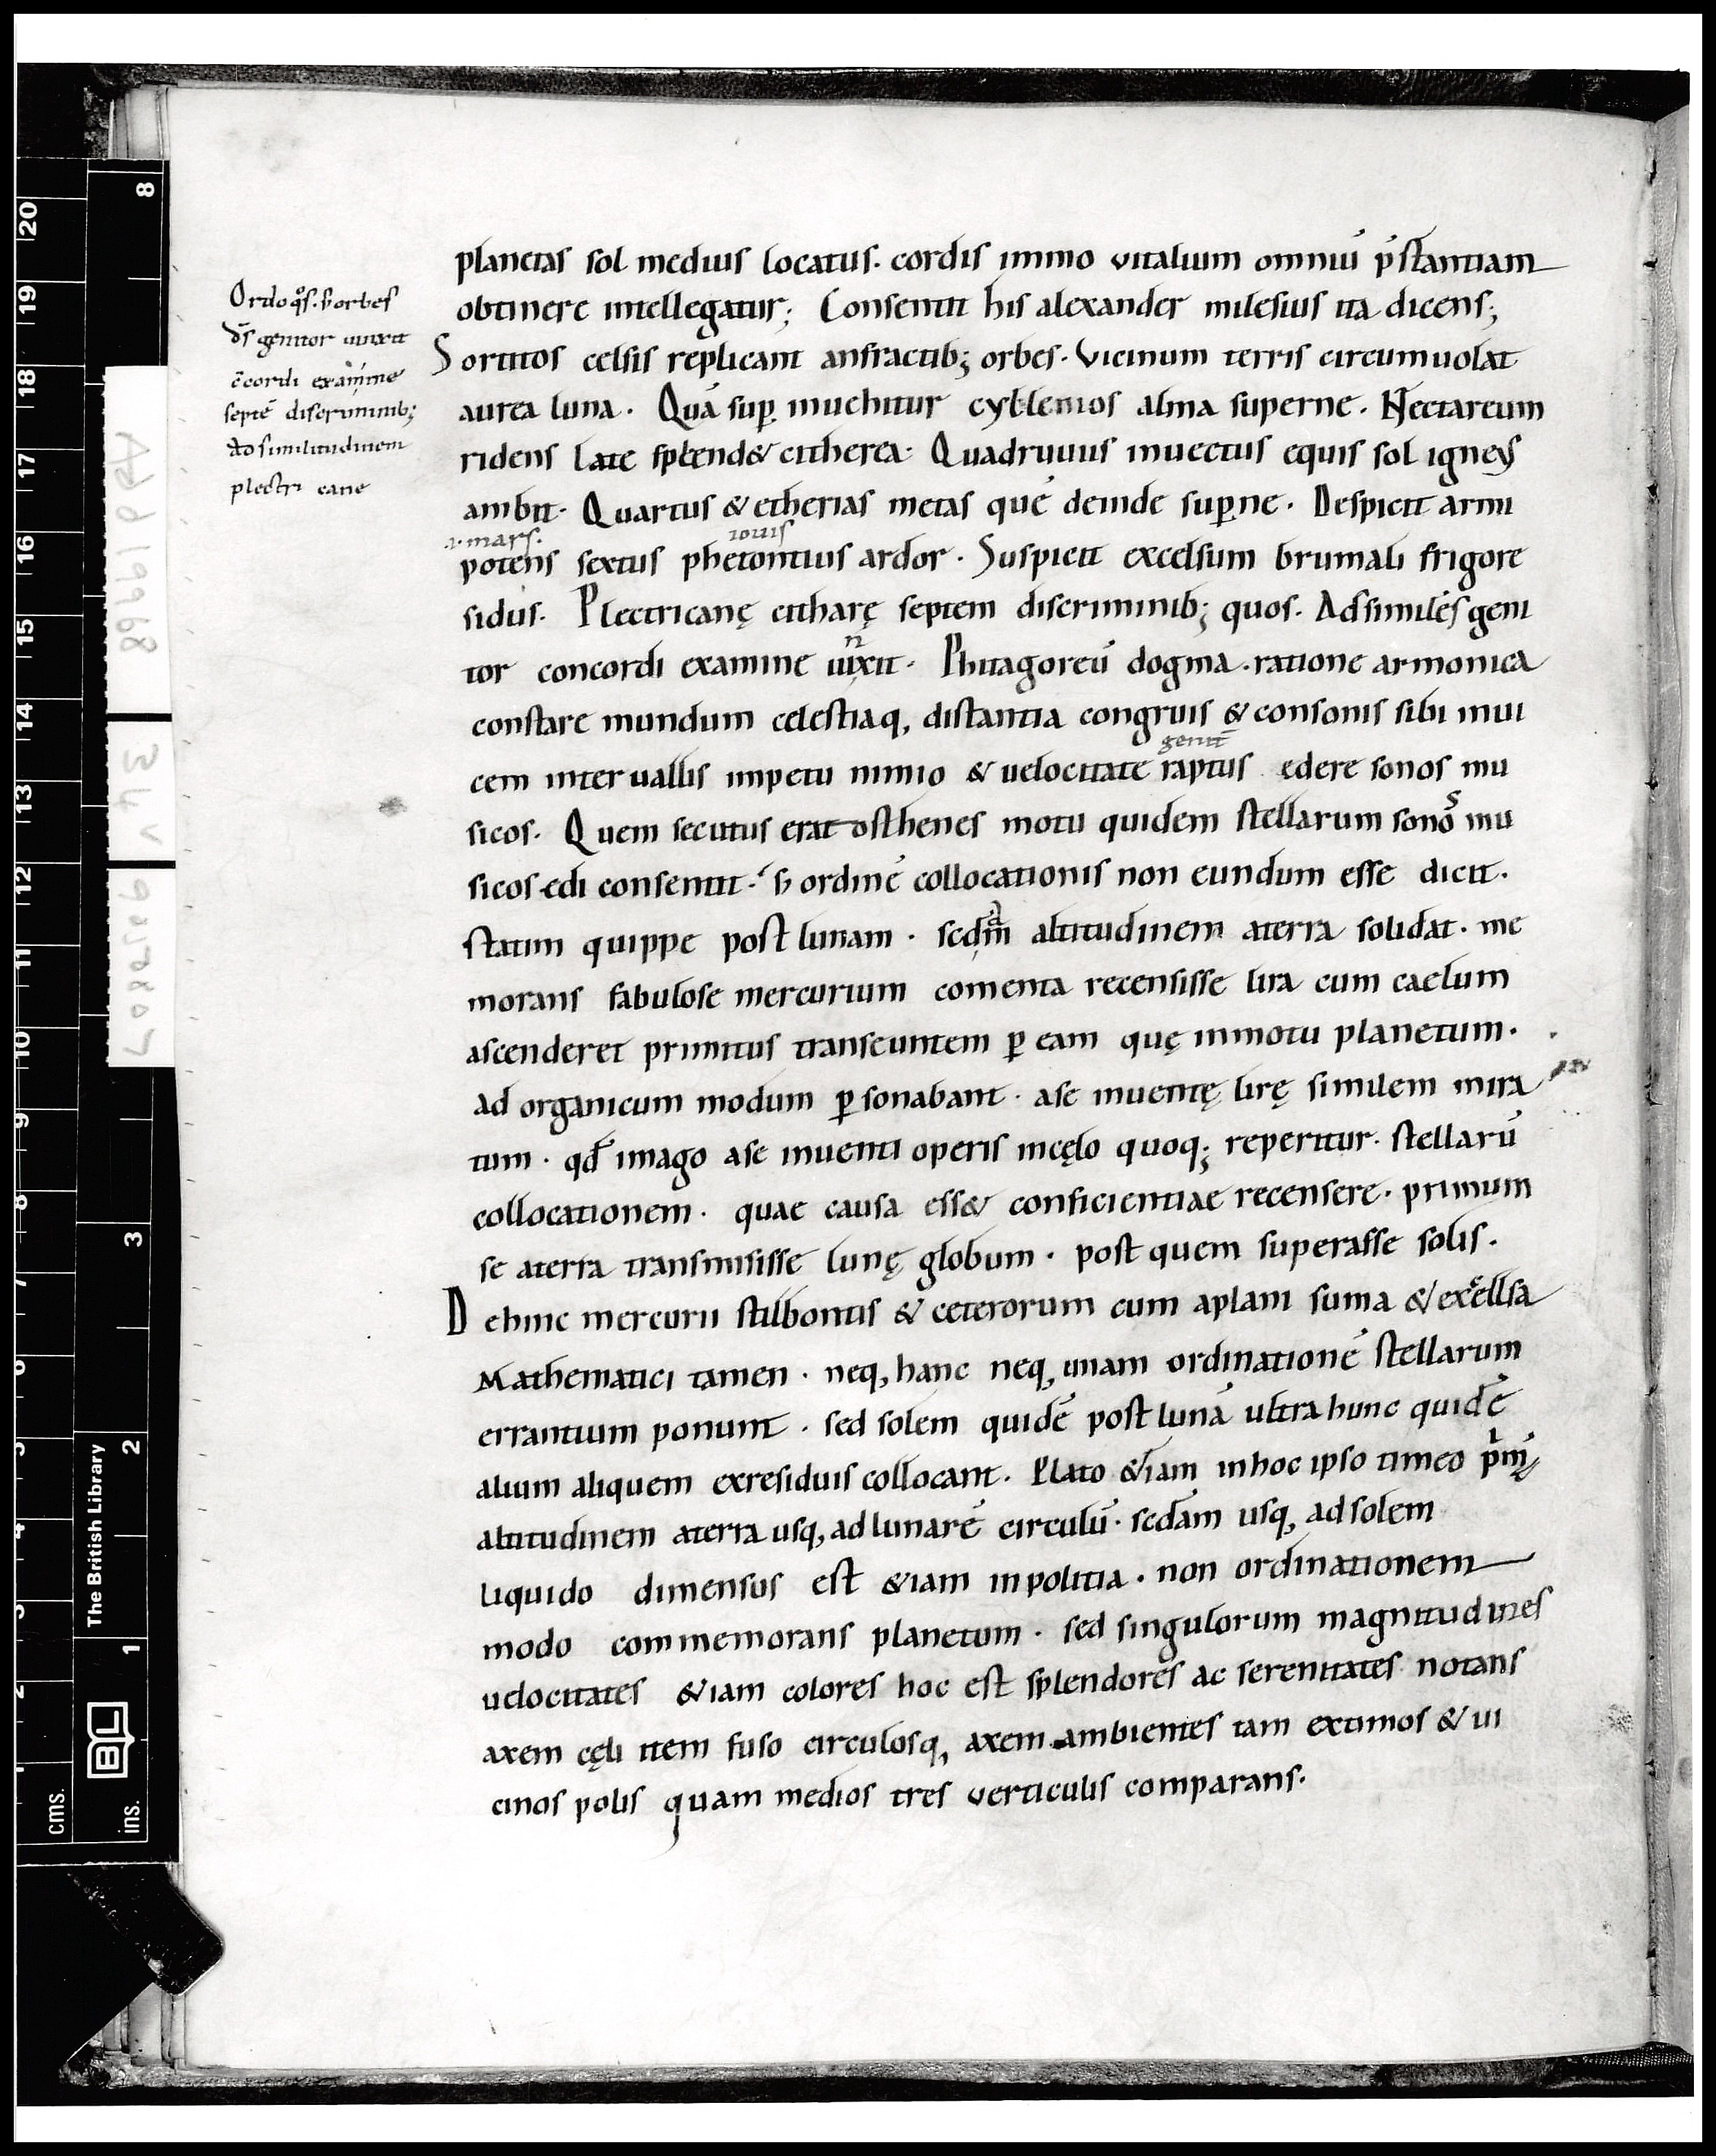 planetas sol medius locatus. cordis immo vitalium omniū p̄stantiam
obtinere intellegatur; Consentit his alexander milesius ita dicens;
Sortitos celsis replicant anfractib; orbes. Vicinum terris circumuolat
aurea luna. Quā sup̱ inuehitur cyllenios alma superne. Nectareum
ridens late splend& citherea. Quadruuis inuectus equis sol igneus
ambit. Quartus & etherias metas quē deinde sup̱ne. Despicit armi
.i. mars. iouis
potens sextus phetontius ardor. Suspicit excelsum brumali frigore
sidus. Plectricanę citharę septem discriminib; quos. Adsimiles geni
n
tor concordi examine uixit. Phitagoreū dogma. ratione armonica
constare mundum celestiaq, distantia congruis & consonis sibi inui
genit̄
cem interuallis impetu nimio & uelocitate raptus edere sonos mu
sicos. Quem secutus eratosthenes motu quidem stellarum sonoˢ mu
sicos edi consentit. s; ordinē collocationis non eundum esse dicit.
statim quippe post lunam. altitudinem aterra solidat. me
morans fabulose mercurium comenta recensisse lira cum caelum
ascenderet primitus transeuntem p̱ eam quę inmotu planetum.
ad organicum modum p̱sonabant. ase inuentę lirę similem mira
tum. qd̄ imago ase inuenti operis incęlo quoq; reperitur. stellarū
collocationem. quae causa ess& conficientiae recensere. primum
se aterra transmisisse lunę globum. post quem superasse solis.
Dehinc mercurii stilbontis & ceterorum cum aplani suma & excellsa
Mathematici tamen. neq, hanc neq, unam ordinationē stellarum
errantium ponunt. sed solem quidē post lunā ultra hunc quidē
alium aliquem exresiduis collocant. Plato &iam inhoc ipso timeo
altitudinem aterra usq, ad lunarē circulū. sedam usq, adsolem
liquido dimensus est &iam inpolitia. non ordinationem
modo commemorans planetum. sed singulorum magnitudines
uelocitates &iam colores hoc est splendores ac serenitates notans
axem cęli item fuso circulosq, axem ambientes tam extimos & ui
cinos polis quam medios tres verticulis comparans.
Ordo q̄s. s; orbes
d̄s genitor uinxit
c̄cordi examine
septē discriminib;
ad similitudinem
plectri cane
Add 19968
34 v
The British Library
BL
cms.
ins.
1 2 3 8
1 2 3 4 5 6 7 8 9 10 11 12 13 14 15 16 17 18 19 20